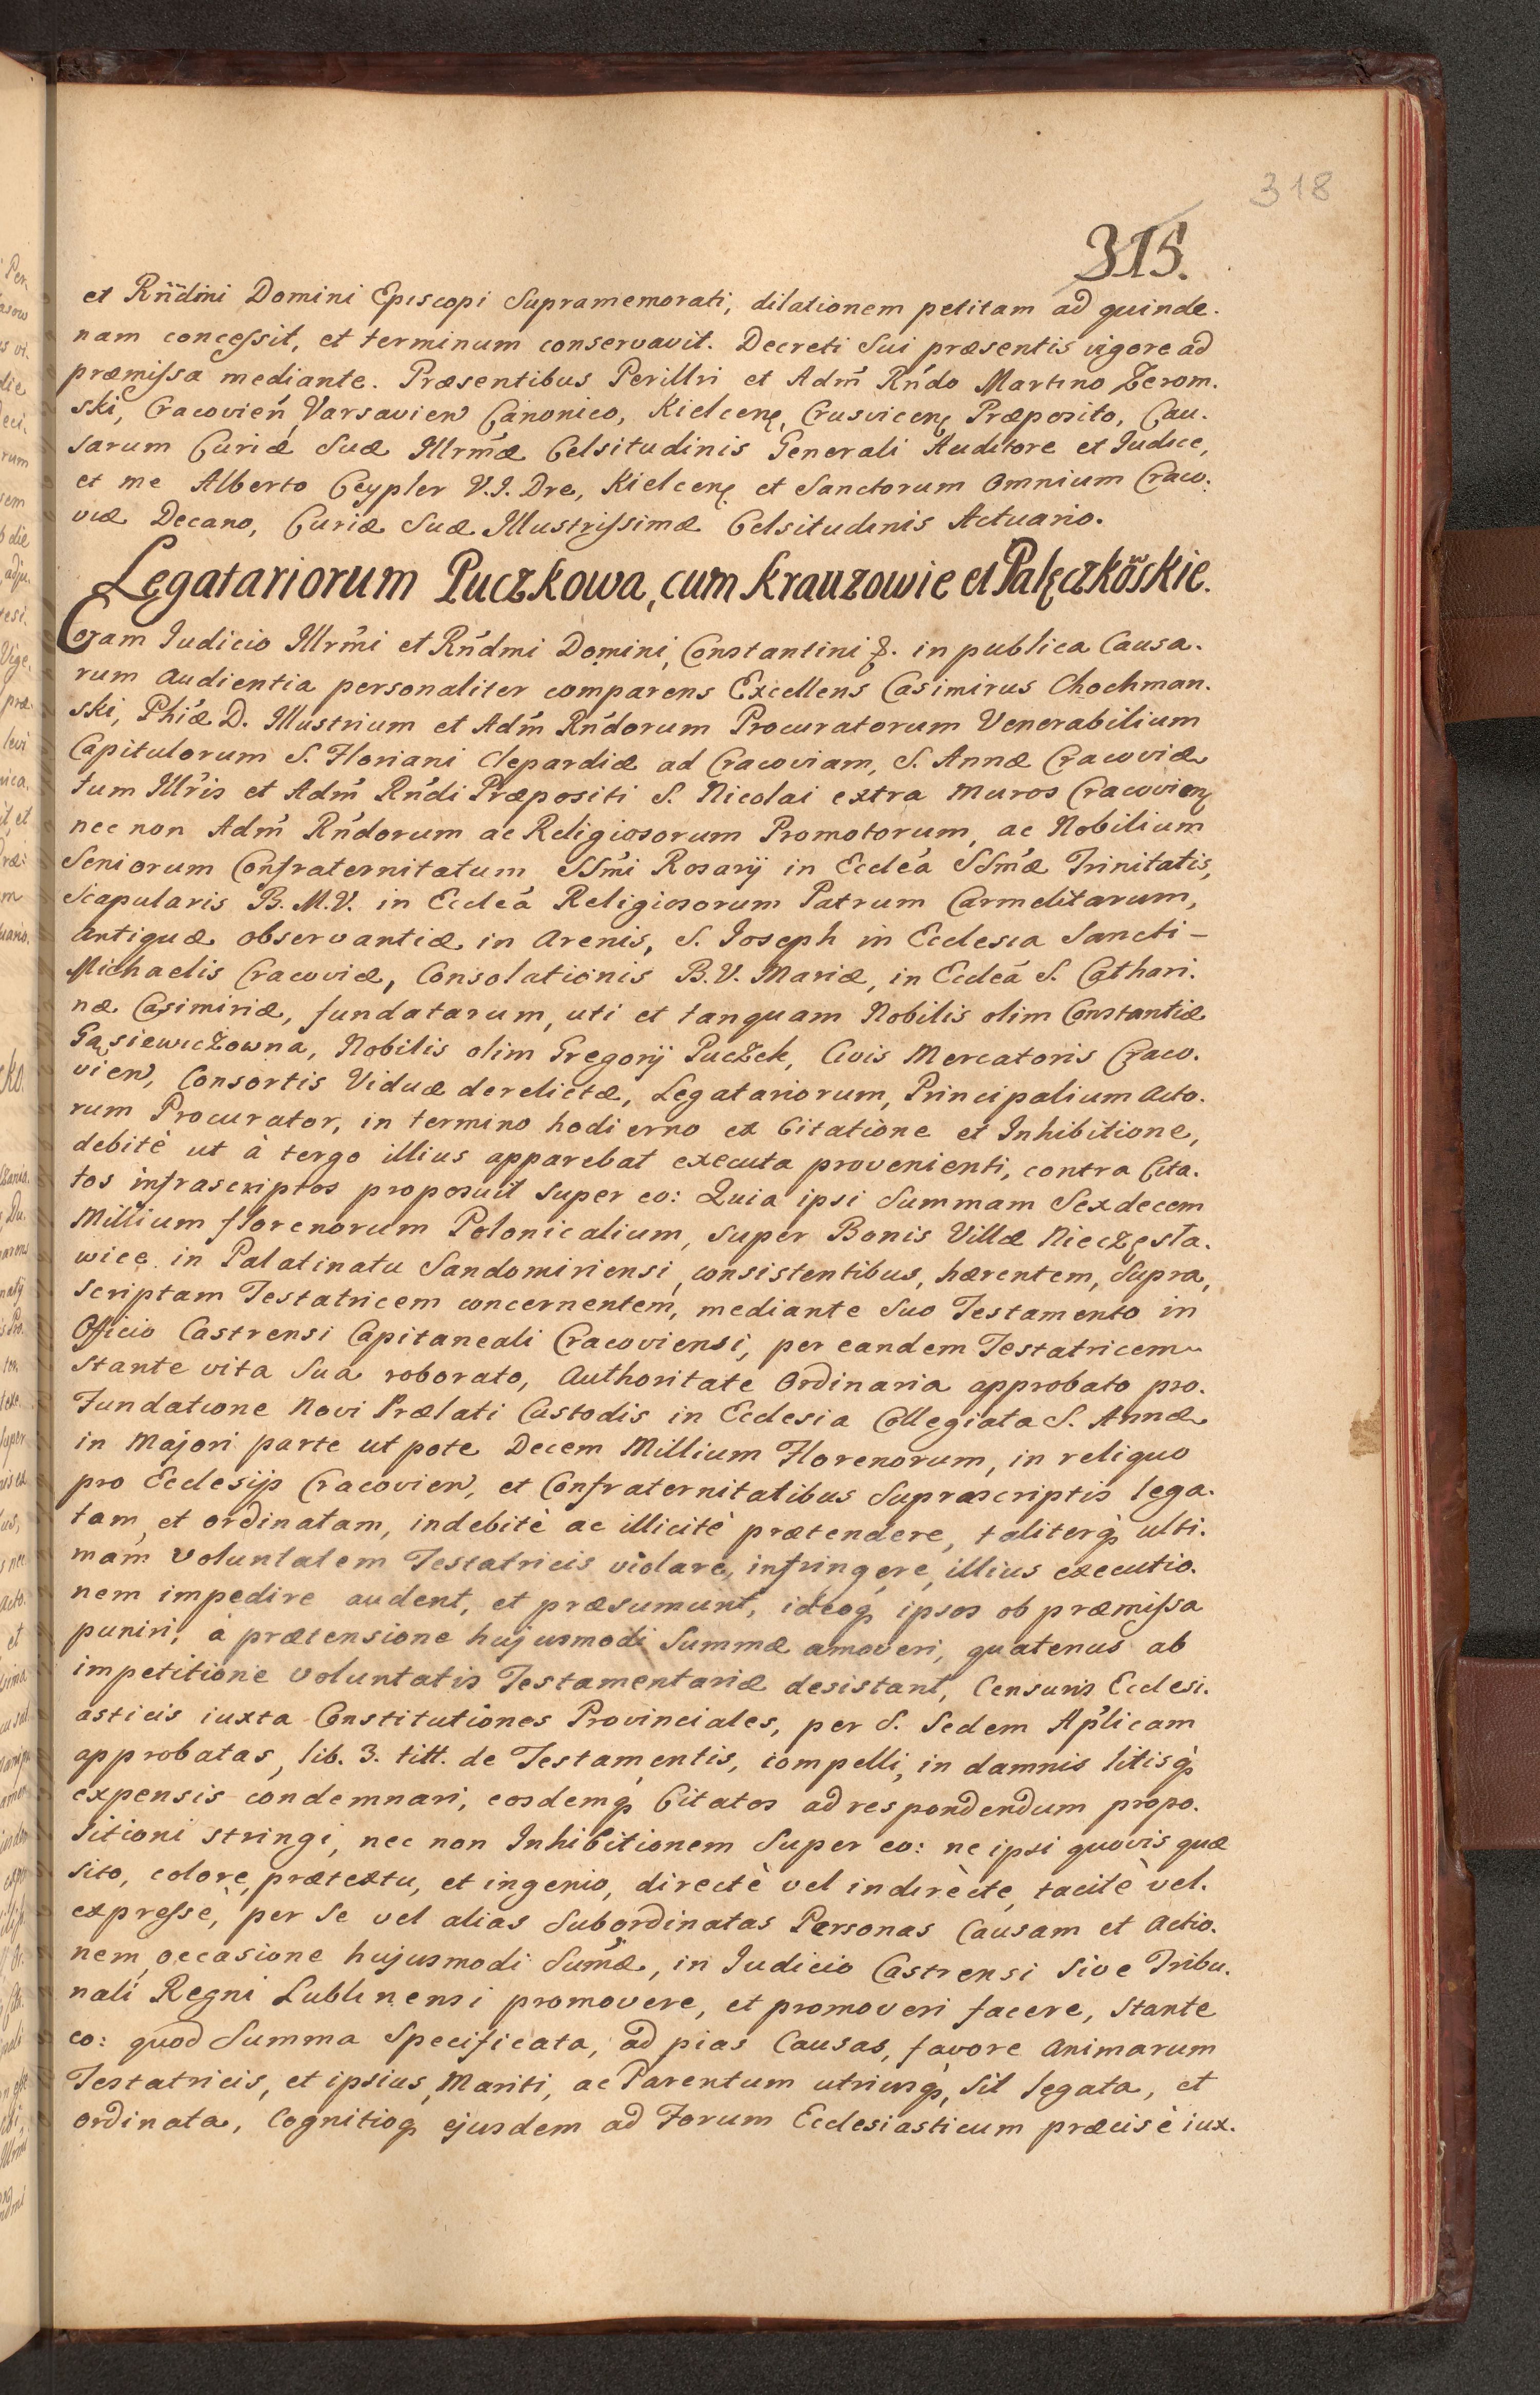 318
315.
et Rñdmi Domini Episcopi Supramemorati, dilationem petitam ad quinde.
nam concessit, et terminum conservavit. Decreti Sui præsentis vigore ad
præmissa mediante. Præsentibus Perillri et Adm̃ Rñdo Martino Zerom.
ski, Cracovien̄ Varsavien̄ Canonico, Kielcen̄, Crusvicen̄ Præposito, Cau.
sarum Curiæ Suæ Illrmæ Celsitudinis Generali Auditore et Iudice,
et me Alberto Ceypler V.I. Dre, Kielcen̄ et Sanctorum Omnium Craco.
viæ Decano, Curiæ Suæ Illustrissimæ Celsitudinis Actuario.
Legatariorum Puczkowa, cum Krauzowie et Pałęczkõskie.
Coram Iudicio Illrmi et Rñdmi Domini, Constantini &. in publica Causa.
rum Audientia personaliter comparens Excellens Casimirus Chochman.
ski, Phiæ D. Illustrium et Adm̃ Rñdorum Procuratorum Venerabilium
Capitulorum S. Floriani Clepardiæ ad Cracoviam, S. Annæ Cracoviæ
tum Illris et Adm̃ Rñdi Præpositi S. Nicolai extra Muros Cracovien̄
nec non Adm̃ Rñdorum ac Religiosorum Promotorum, ac Nobilium
Seniorum Confraternitatum SSmi Rosarij in Eccleã SSmæ Trinitatis,
Scapularis B. M. V. in Eccleã Religiosorum Patrum Carmelitarum,
Antiquæ observantiæ in Arenis, S. Ioseph in Ecclesia Sancti -
Michaelis Cracoviæ, Consolationis B. V. Mariæ, in Eccleã S. Cathari.
næ Casimiriæ, fundatarum, uti et tanquam Nobilis olim Constantiæ
Gąsiewiczowna, Nobilis olim Gregorij Puczek, Civis Mercatoris Craco.
vien̄, Consortis Viduæ derelictæ, Legatariorum, Principalium Acto.
rum Procurator, in termino hodierno ex Citatione et Inhibitione,
debitè ut à tergo illius apparebat executa provenienti, contra Cita.
tos infrascriptos proposuit super eo: Quia ipsi Summam Sexdecem
Millium florenorum Polonicalium, super Bonis Villæ Nieczęsta.
wice in Palatinatu Sandomiriensi, consistentibus, hærentem, Supra,
scriptam Testatricem concernentem, mediante Suo Testamento in
Officio Castrensi Capitaneali Cracoviensi, per eandem Testatricem
stante vita Sua roborato, Authoritate Ordinaria approbato pro.
Fundatione Novi Prælati Custodis in Ecclesia Collegiata S. Annæ
in Majori parte utpote Decem Millium Florenorum, in reliquo
pro Ecclesijs Cracovien̄, et Confraternitatibus Suprascriptis lega.
tam, et ordinatam, indebitè ac illicitè prætendere, taliterq́ ulti.
mam voluntatem Testatricis violare, infringere, illius executio.
nem impedire audent, et præsumunt, ideoq́ ipsos ob præmissa
puniri, à prætensione hujusmodi Summæ amoveri, quatenus ab
impetitione voluntatis Testamentariæ desistant, Censuris Ecclesi.
asticis iuxta Constitutiones Provinciales, per S. Sedem Aplicam
approbatas, lib. 3. titt. de Testamentis, compelli, in damnis litisq́
expensis condemnari, eosdemq́ Citatos ad respondendum propo.
sitioni stringi, nec non Inhibitionem Super eo: ne ipsi quovis quæ
sito, colore, prætextu, et ingenio, directè vel indirècte, tacitè vel.
expressè, per Se vel alias Subordinatas Personas Causam et Actio.
nem, occasione hujusmodi Sum̃æ, in Iudicio Castrensi Sive Tribu.
nali Regni Lublinensi promovere, et promoveri facere, stante
eo: quod Summa Specificata, ad pias Causas, favore Animarum
Testatricis, et ipsius, Mariti, ac Parentum utriusq́, sit legata, et
ordinata, Cognitioq́ ejusdem ad Forum Ecclesiasticum præcisè iux.